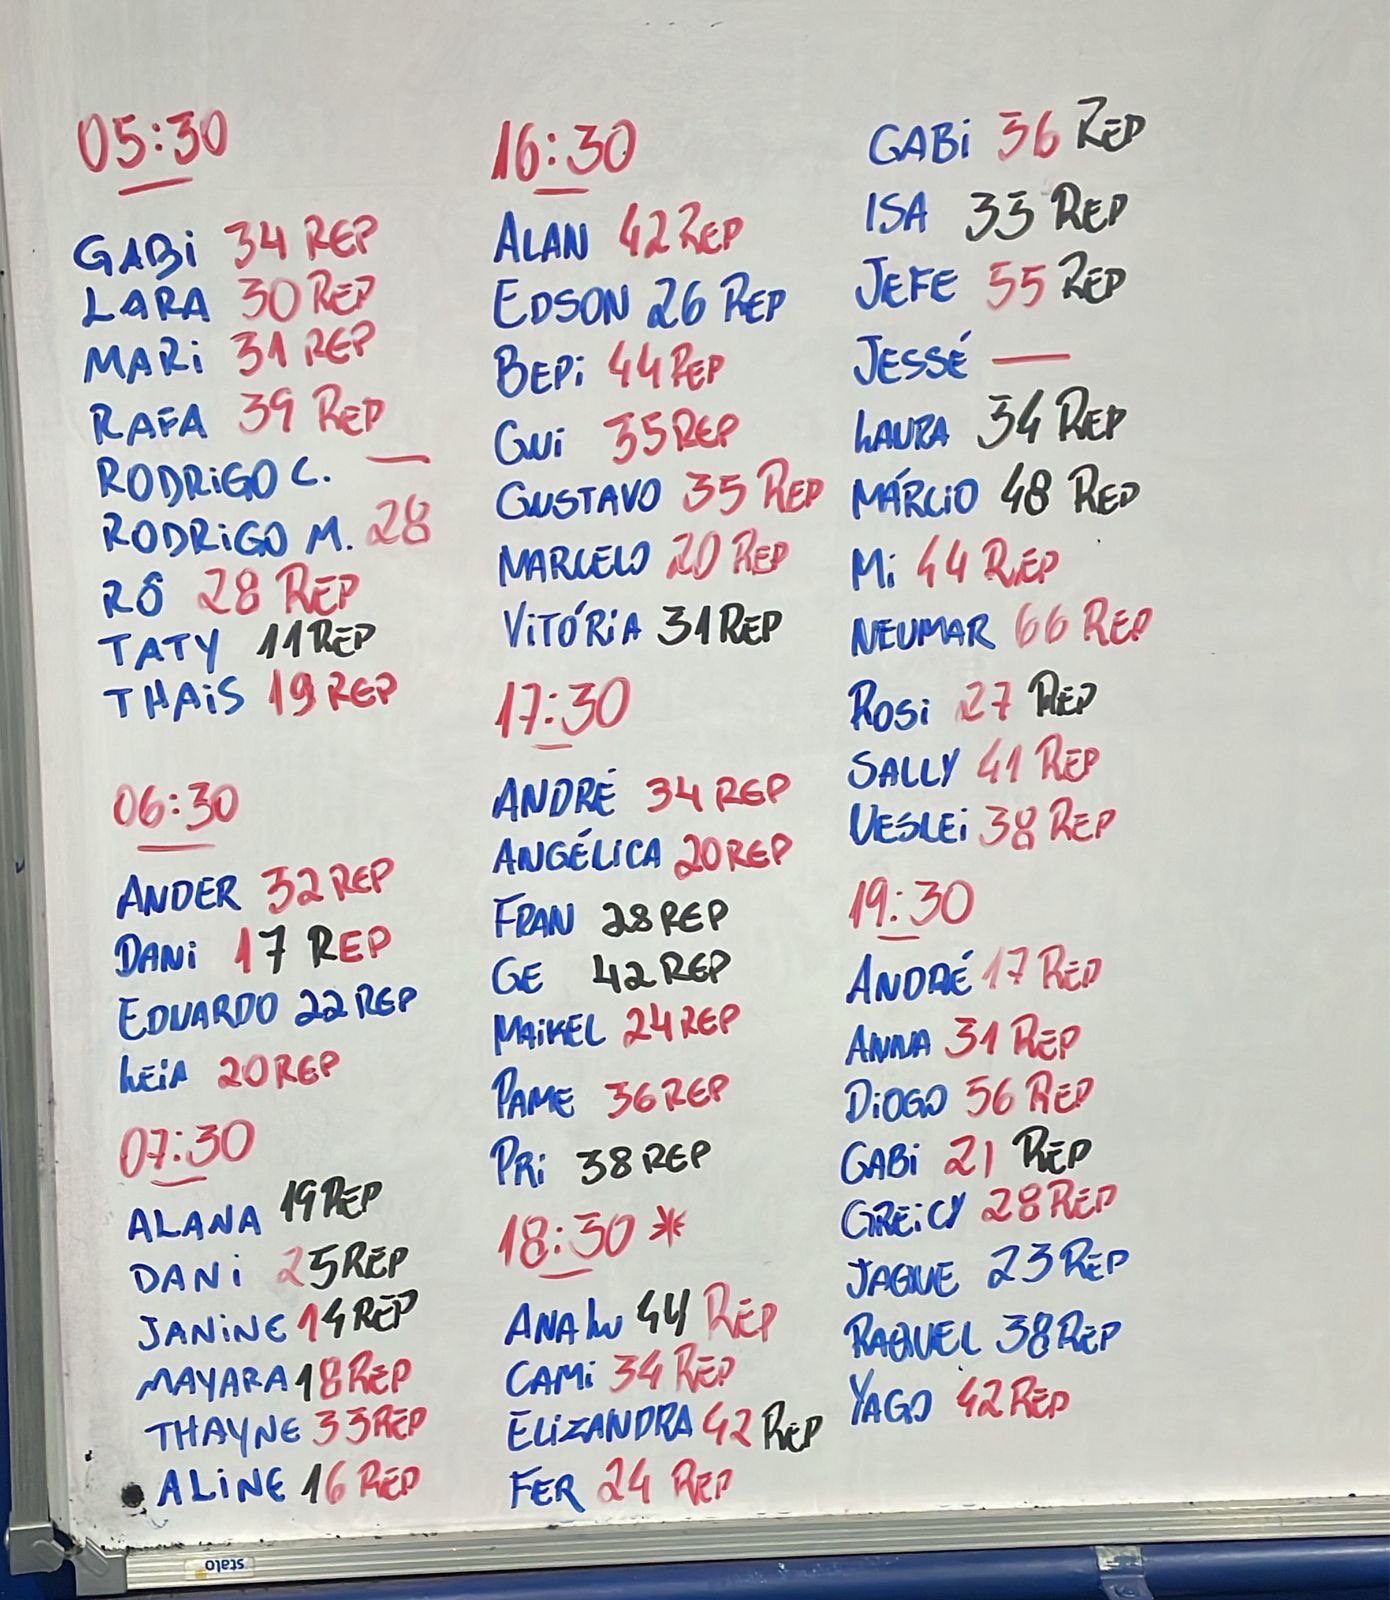 05:30
GABi 34 REP
LARA 30 REP
MARi 31 REP
RAFA 39 REP
RODRiGO C. —
RODRiGO M. 28
RÔ 28 REP
TATY 11 REP
THAiS 19 REP
06:30
ANDER 32 REP
DANi 17 REP
EDUARDO 22 REP
LEiA 20 REP
07:30
ALANA 19 REP
DANi 25 REP
JANiNE 14 REP
MAYARA 18 REP
THAYNE 33 REP
ALiNE 16 REP
16:30
ALAN 42 REP
EDSON 26 REP
BEPi 44 REP
GUi 35 REP
GUSTAVO 35 REP
MARCELO 20 REP
ViTÓRiA 31 REP
17:30
ANDRÉ 34 REP
ANGÉLiCA 20 REP
FRAN 28 REP
GE 42 REP
MAiKEL 24 REP
PAME 36 REP
PRi 38 REP
18:30 *
ANA LU 44 REP
CAMi 34 REP
ELiZANDRA 42 REP
FER 24 REP
GABi 36 REP
ISA 33 REP
JEFE 55 REP
JESSÉ —
LAURA 34 REP
MÁRCiO 48 REP
Mi 44 REP
NEUMAR 66 REP
ROSi 27 REP
SALLY 41 REP
UESLEi 38 REP
19:30
ANDRÉ 17 REP
ANNA 31 REP
DiOGO 56 REP
GABi 21 REP
GREiCY 28 REP
JAQUE 23 REP
RAQUEL 38 REP
YAGO 42 REP
stalo